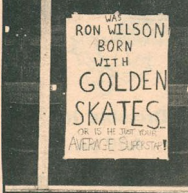 WAS
RON WILSON
BORN
WITH
GOLDEN
SKATES
OR IS HE JUST YOUR
AVERAGE SUPERSTAR!